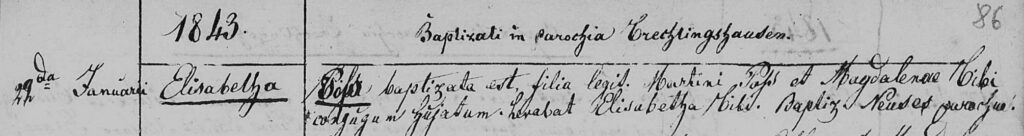 86
1843. Baptizati in parochia Trechtingshausen.
22da Januarii Elisabetha baptizata est, filia legit. Martini et Magdalenae
conjugum hujatum. Levabat Elisabetha Baptiz. parochus.